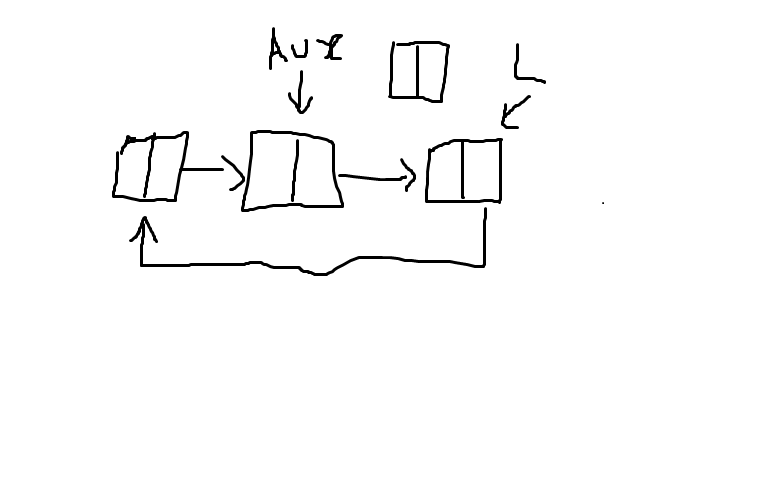 Aux
L